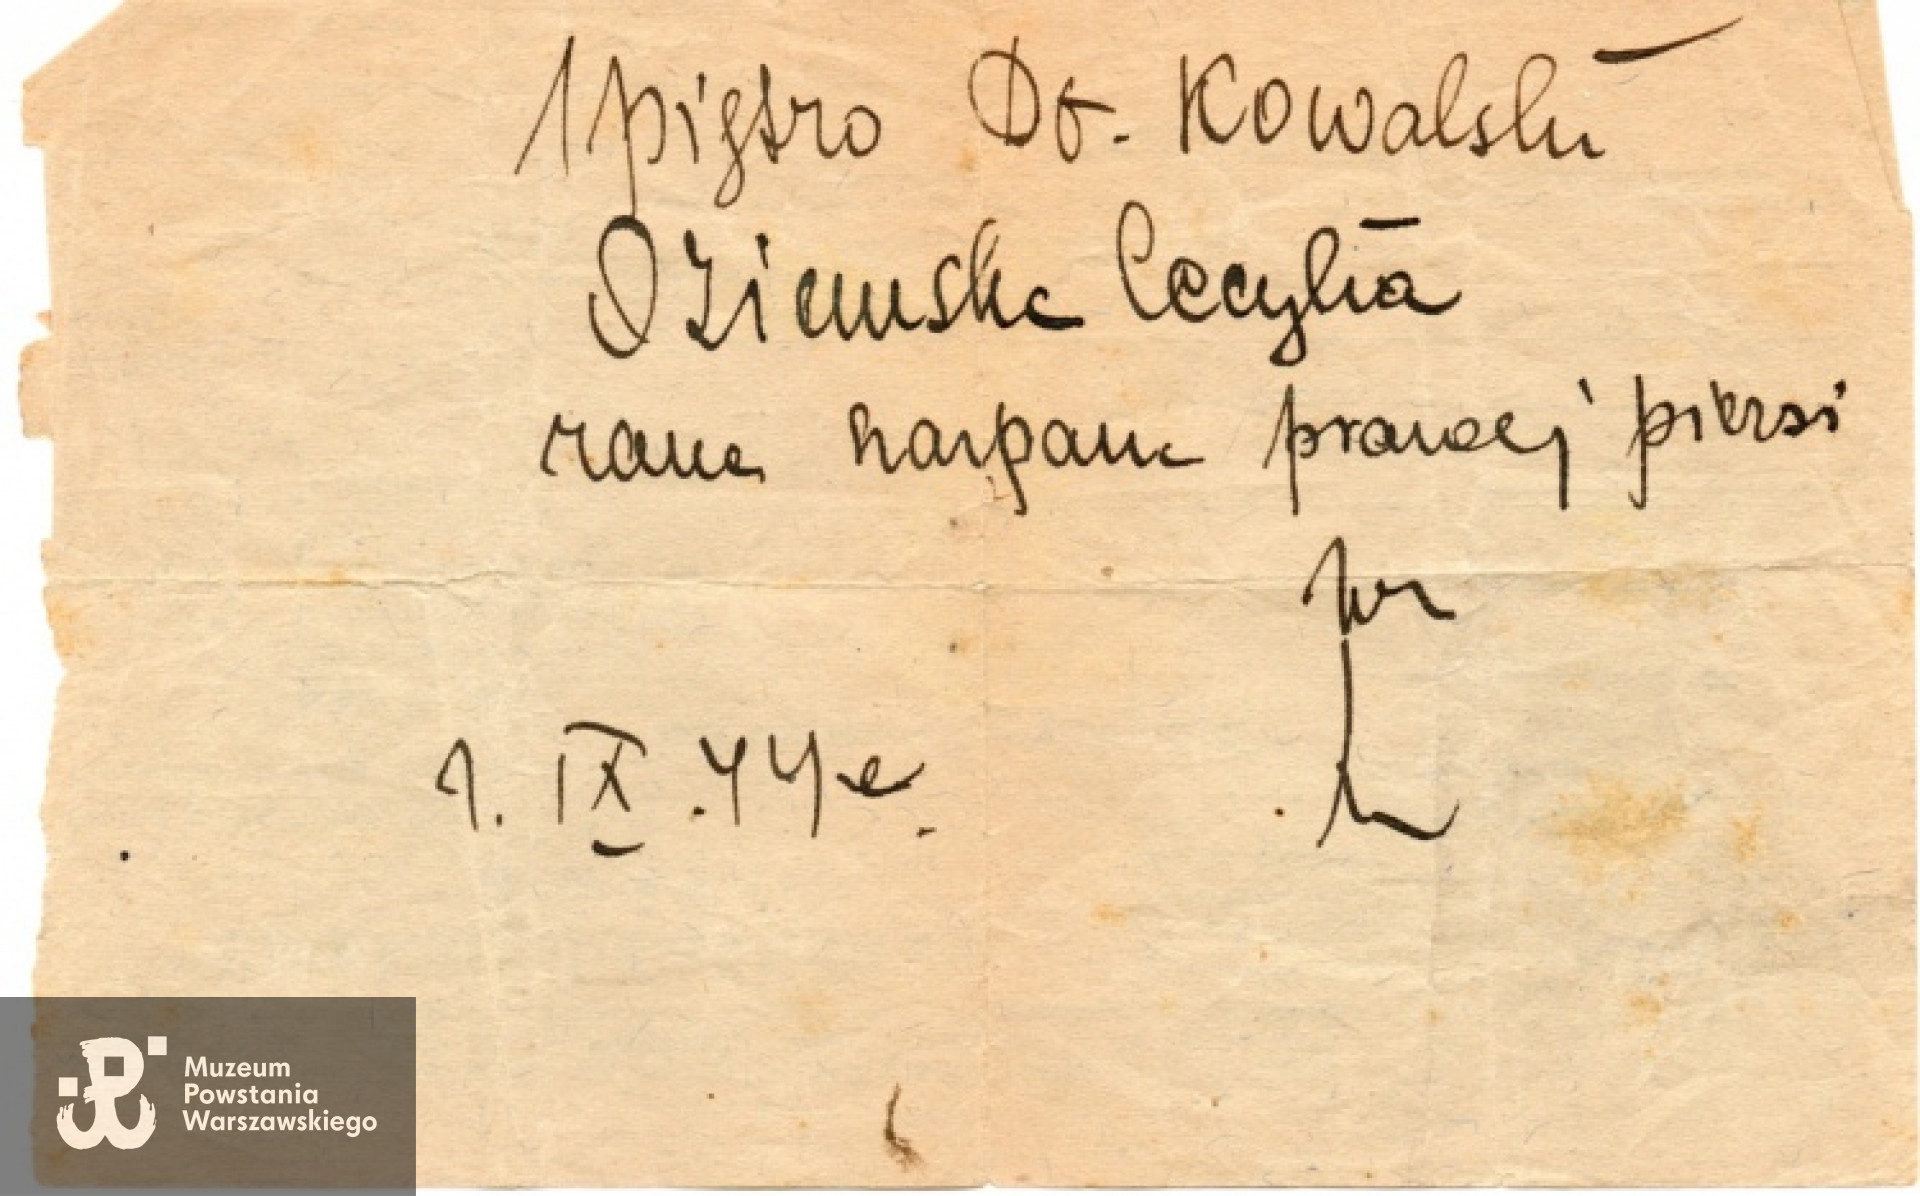 1 piętro Dr. Kowalski
Oziemska Cecylia
rana szarpana prawej piersi
1. IX. 44 r.
Muzeum
Powstania
Warszawskiego